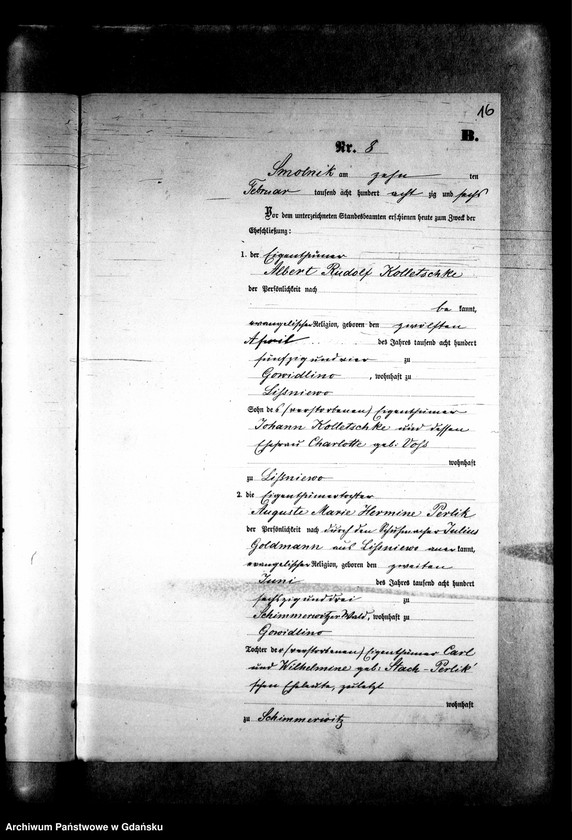 16
B.
Nr. 8
Smolnik am zehn ten
Februar tausend acht hundert acht zig und sechs
Vor dem unterzeichneten Standesbeamten erschienen heute zum Zweck der
Eheschließung:
1. der Eigenthümer
Albert Rudolf Kolletschke
der Persönlichkeit nach
be kannt,
evangelischer Religion, geboren den zwölften
April des Jahres tausend acht hundert
fünfzig und vier zu
Gowidlino, wohnhaft zu
Lissniewo
Sohn des (verstorbenen) Eigenthümer
Johann Kolletschke und dessen
Ehefrau Charlotte geb: Voss
wohnhaft
zu Lissniewo
2. die Eigenthümertochter
Auguste Marie Hermine Perlik
der Persönlichkeit nach durch den Schuhmacher Julius
Goldmann aus Lissniewo aner kannt,
evangelischer Religion, geboren den zweiten
Juni des Jahres tausend acht hundert
sechszig und drei zu
Schimmerwitzer Wald, wohnhaft zu
Gowidlino
Tochter der (verstorbenen) Eigenthümer Carl
und Wilhelmine geb: Stach - Perlik'
schen Eheleute, zuletzt
wohnhaft
zu Schimmerwitz
Archiwum Państwowe w Gdańsku